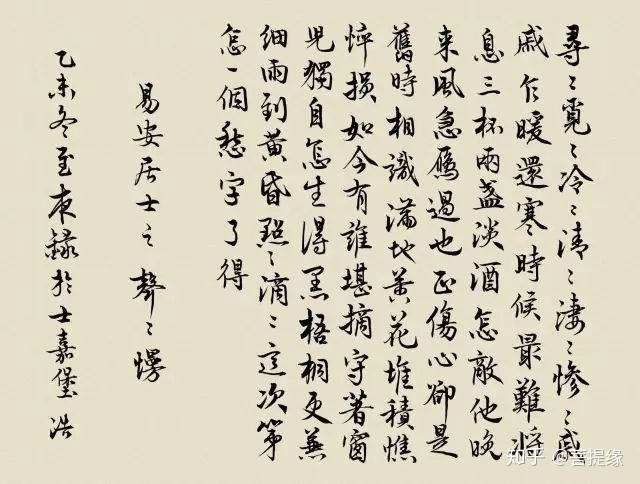 尋〻覓〻冷〻清〻淒〻慘〻戚
戚乍暖還寒時候最難將
息三杯兩盞淡酒怎敵他晚
来風急雁過也正傷心卻是
舊時相識滿地黃花堆積憔
悴損如今有誰堪摘守著窗
兒獨自怎生得黑梧桐更兼
細雨到黃昏點〻滴〻這次第
怎一個愁字了得
易安居士之聲〻慢
乙未冬至夜錄於士嘉堡浩
知乎 @菩提缘